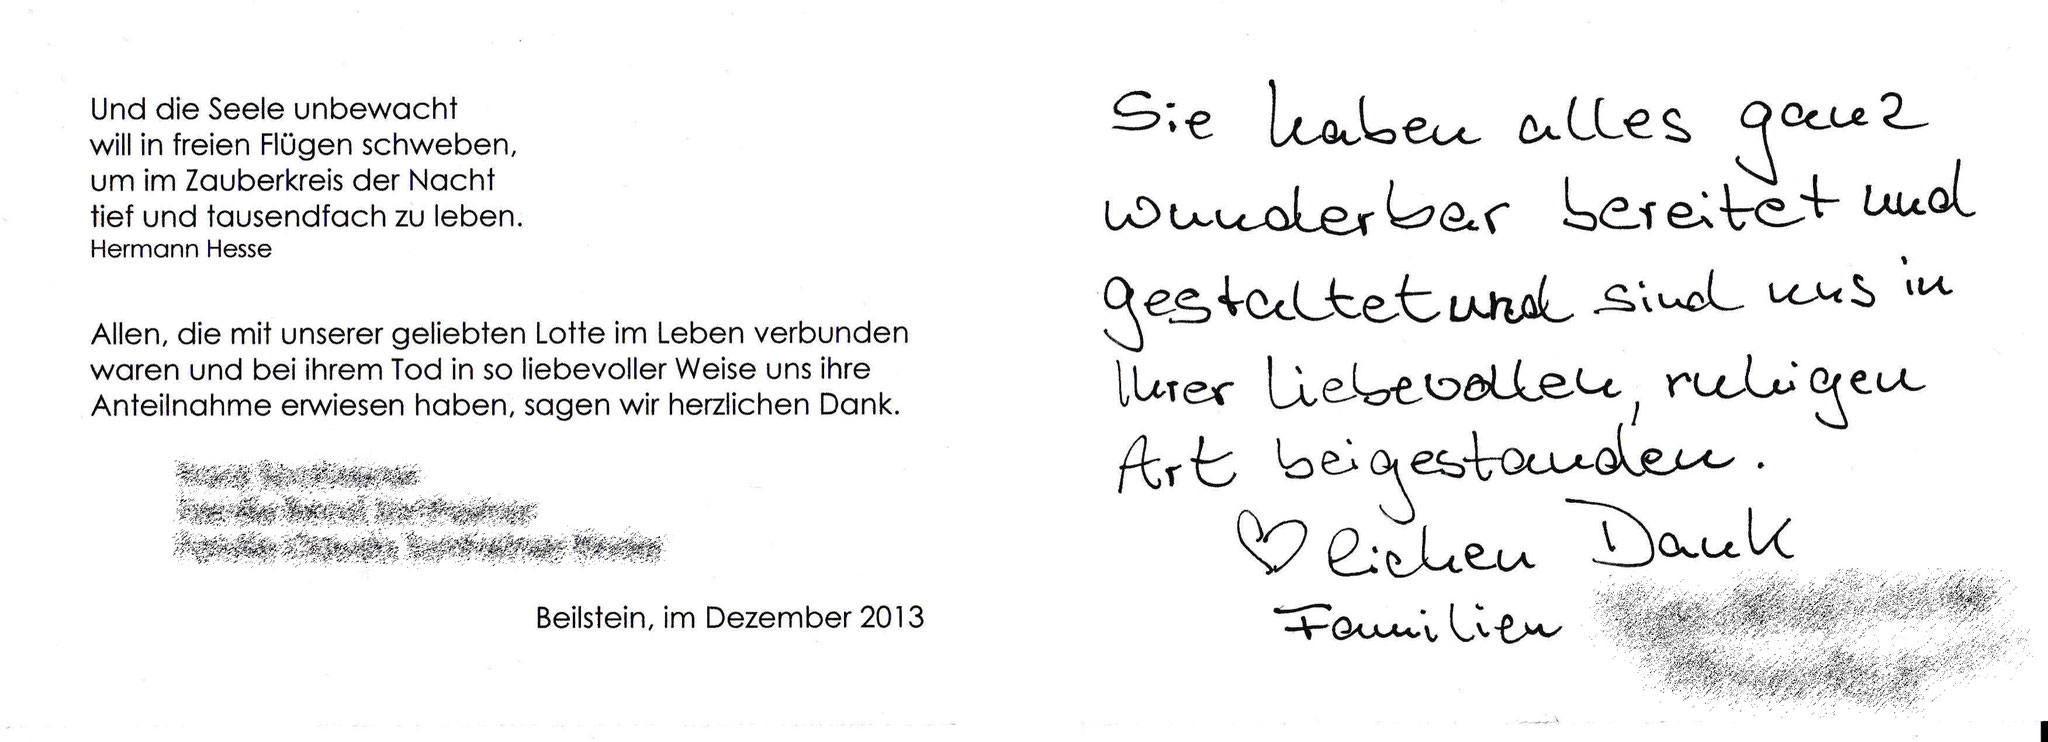 Und die Seele unbewacht
will in freien Flügen schweben,
um im Zauberkreis der Nacht
tief und tausendfach zu leben.
Hermann Hesse
Allen, die mit unserer geliebten Lotte im Leben verbunden
waren und bei ihrem Tod in so liebevoller Weise uns ihre
Anteilnahme erwiesen haben, sagen wir herzlichen Dank.
Beilstein, im Dezember 2013
Sie haben alles ganz
wunderbar bereitet und
gestaltet und sind uns in
Ihrer liebevollen, ruhigen
Art beigestanden.
♡lichen Dank
Familien